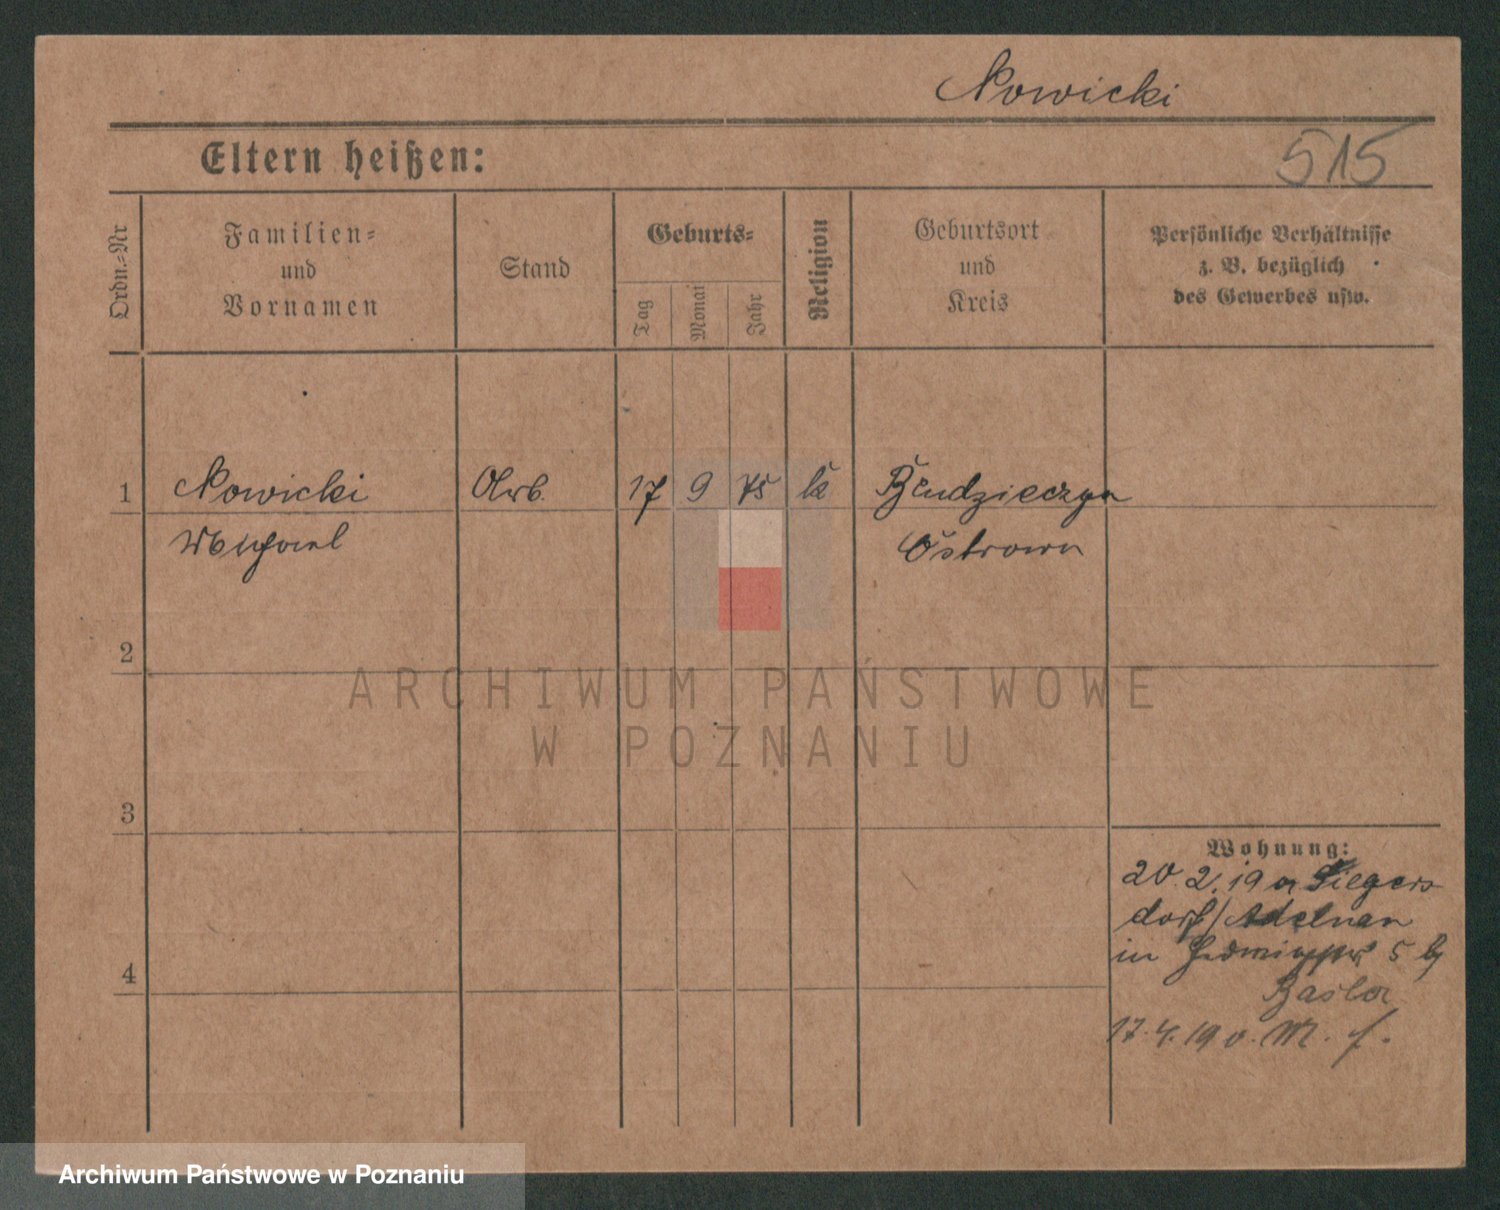 Nowicki
Eltern heißen:
515
Ordn.=Nr
Familien=
und
Vornamen
Stand
Geburts=
Tag
Monat
Jahr
Religion
Geburtsort
und
Kreis
Persönliche Verhältnisse
z. B. bezüglich
des Gewerbes usw.
1 Nowicki Arb. 17 9 75 k Bendzieczyn
Michael Ostrowo
2
3
4
Wohnung:
20.2.19 a Siegers
dorf/Adelnau
in 5 b/
Basler
17.4.19 v. M. f.
ARCHIWUM PAŃSTWOWE
W POZNANIU
Archiwum Państwowe w Poznaniu